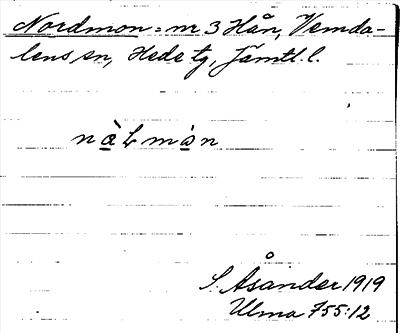 Nordmon = nr 3 Hån, Vemda-
lens sn, Hede tg, Jämtl. l.
S. Åsander 1919
Ulma 755:12